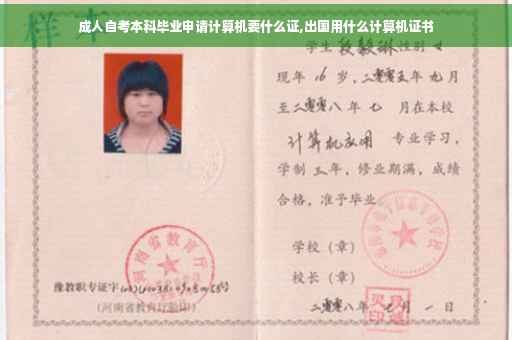 成人自考本科毕业申请计算机要什么证,出国用什么计算机证书
样本
学生 性别 女
现年 16 岁,二零零五年 九月
至二零零八年 七 月在本校
计算机应用 专业学习,
学制 三年,修业期满,成绩
合格,准予毕业
学校(章)
校长(章)
二零零八年 七 月 一 日
河南省教育厅
豫教职专证字
(河南省教育厅验印)